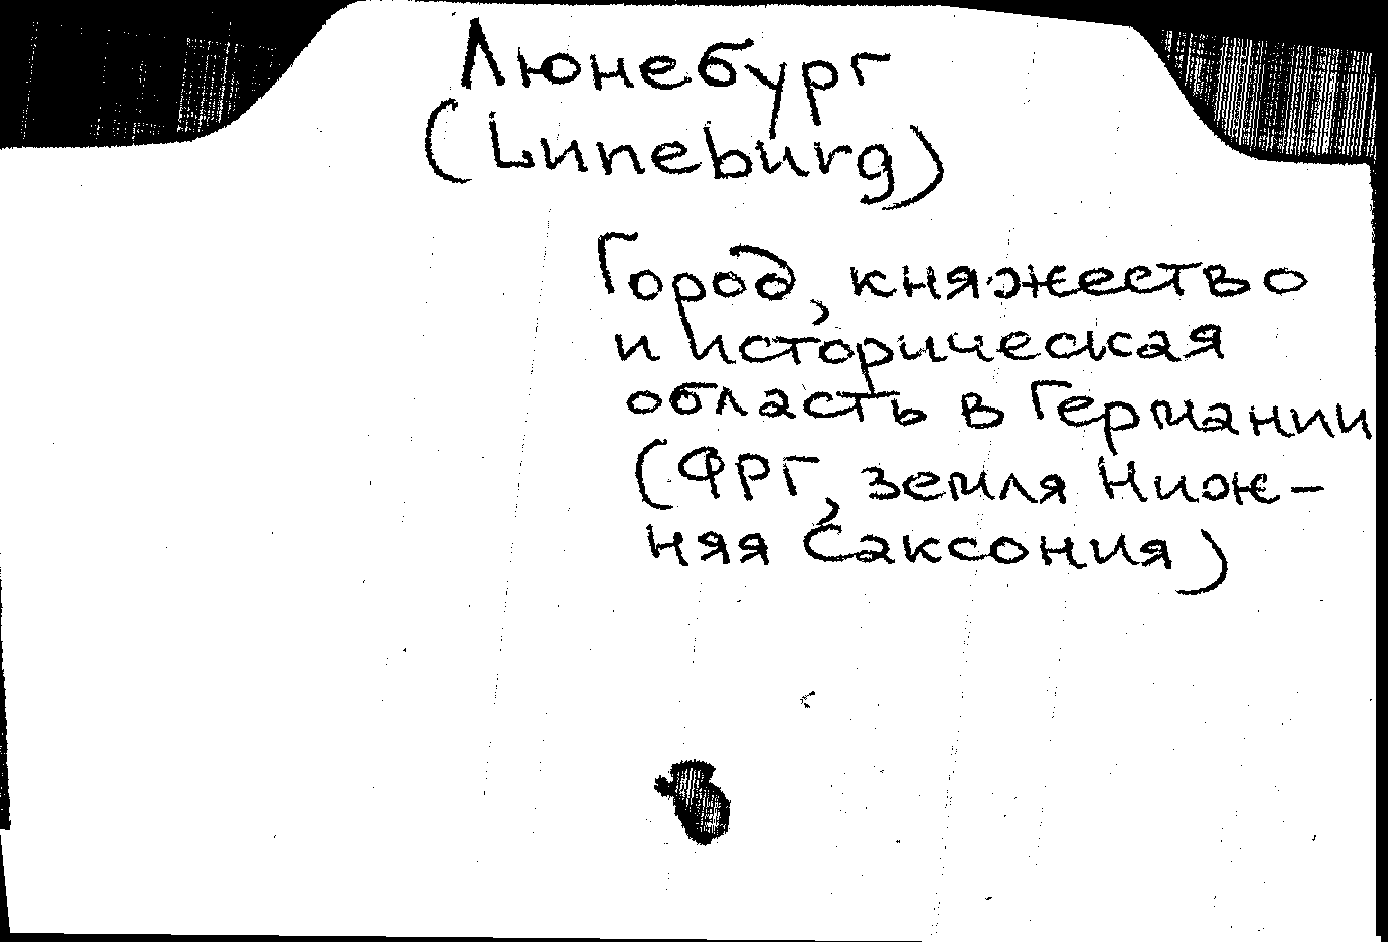 Люнебург
(Luneburg)
Город, княжество
и историческая
область в Германии
(ФРГ, земля Ниж-
няя Саксония)